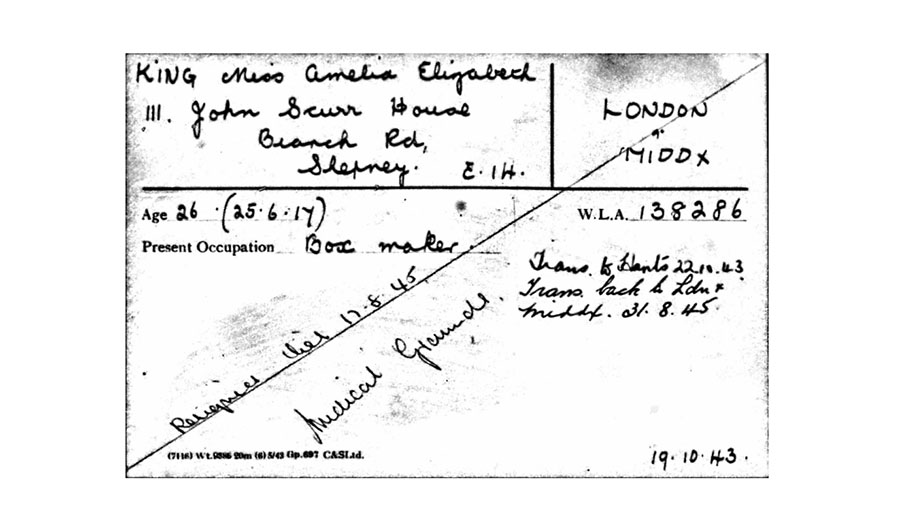 KING Miss Amelia Elizabeth
111. John Scurr House
Branch Rd,
Stepney. E.14.
LONDON
&
MIDDX
Age 26 (25.6.17)
W.L.A. 138286
Present Occupation Box maker.
Trans. to Hants 22.10.43
Trans. back to Ldn &
Middx. 31.8.45
Resigned 17.8.45
Medical Grounds.
(7116) Wt.9386 20m (6) 5/43 Gp.697 CASLtd.
19.10.43.